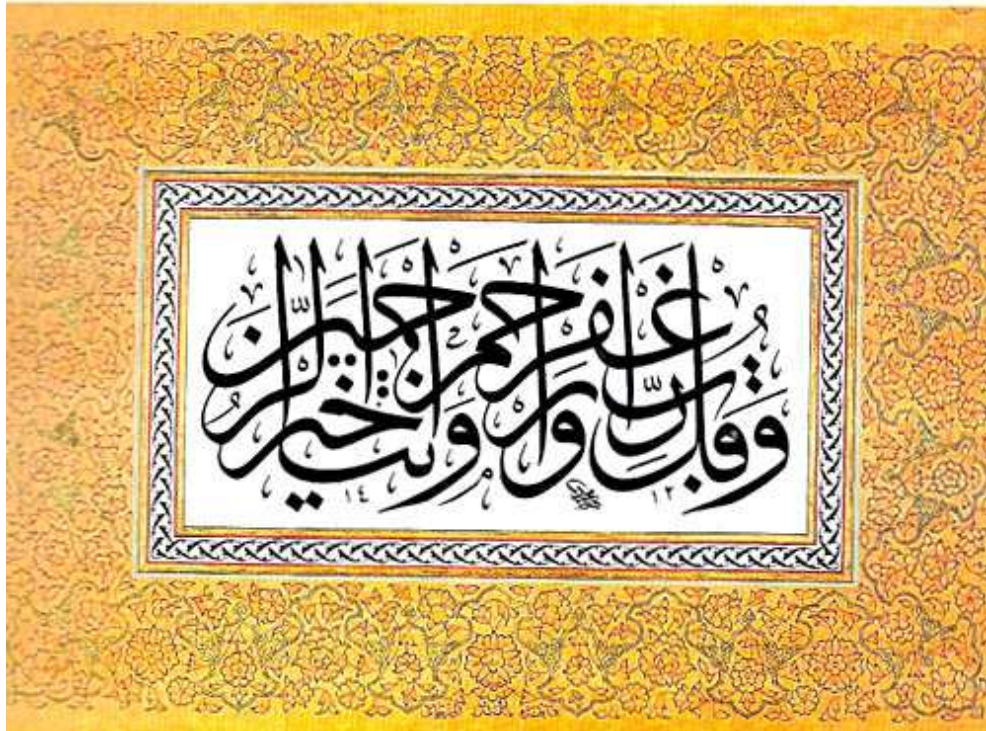 وَقُل رَّبِّ اغْفِرْ وَارْحَمْ وَأَنتَ خَيْرُ الرَّاحِمِينَ
١٤ ١٢